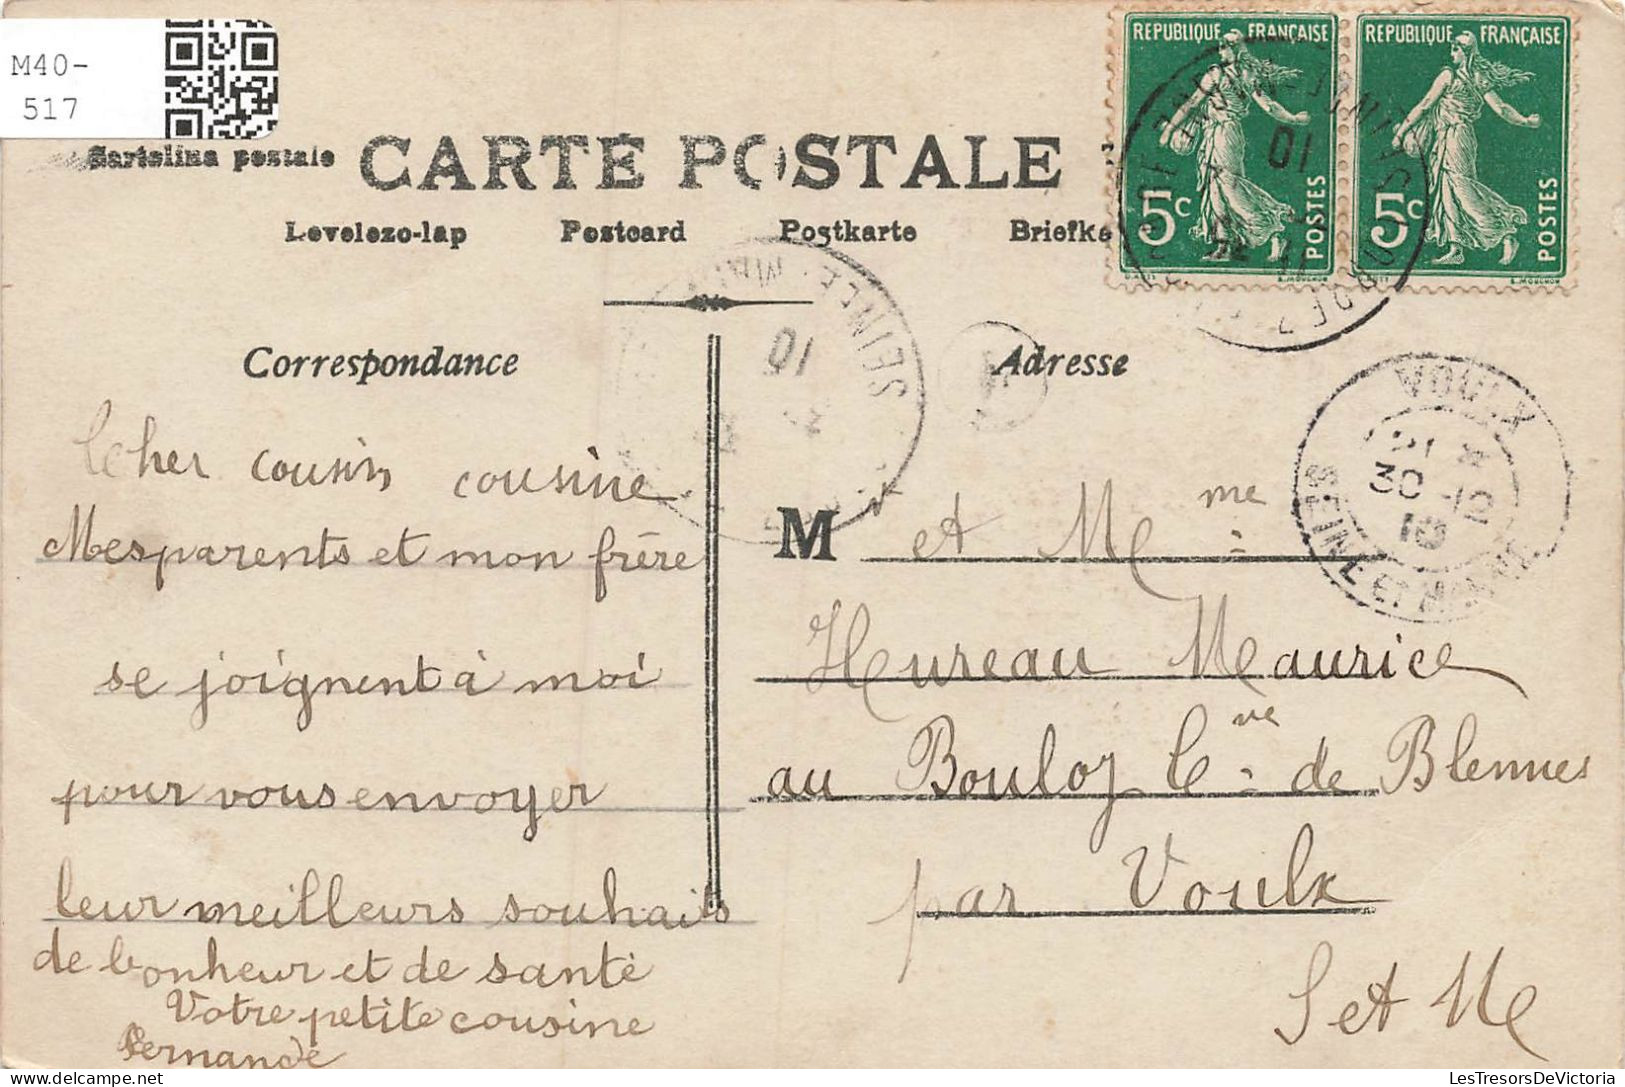 M40-
517
Cartolina postale
CARTE POSTALE
Levelezo-lap Postcard Postkarte Briefka
REPUBLIQUE FRANÇAISE
5c
POSTES
REPUBLIQUE FRANÇAISE
5c
POSTES
E. MOUCHON
Correspondance
Cher cousin cousine
Mes parents et mon frère
se joignent à moi
pour vous envoyer
leur meilleurs souhaits
de bonheur et de santé
Votre petite cousine
Fernande
Adresse
M et Mme
Hureau Maurice
au Bouloy Cve de Blennes
par Voulx
S et M
VOULX
30 -12
10
SEINE ET MARNE
SEINE
10
10
LesTresorsDeVictoria